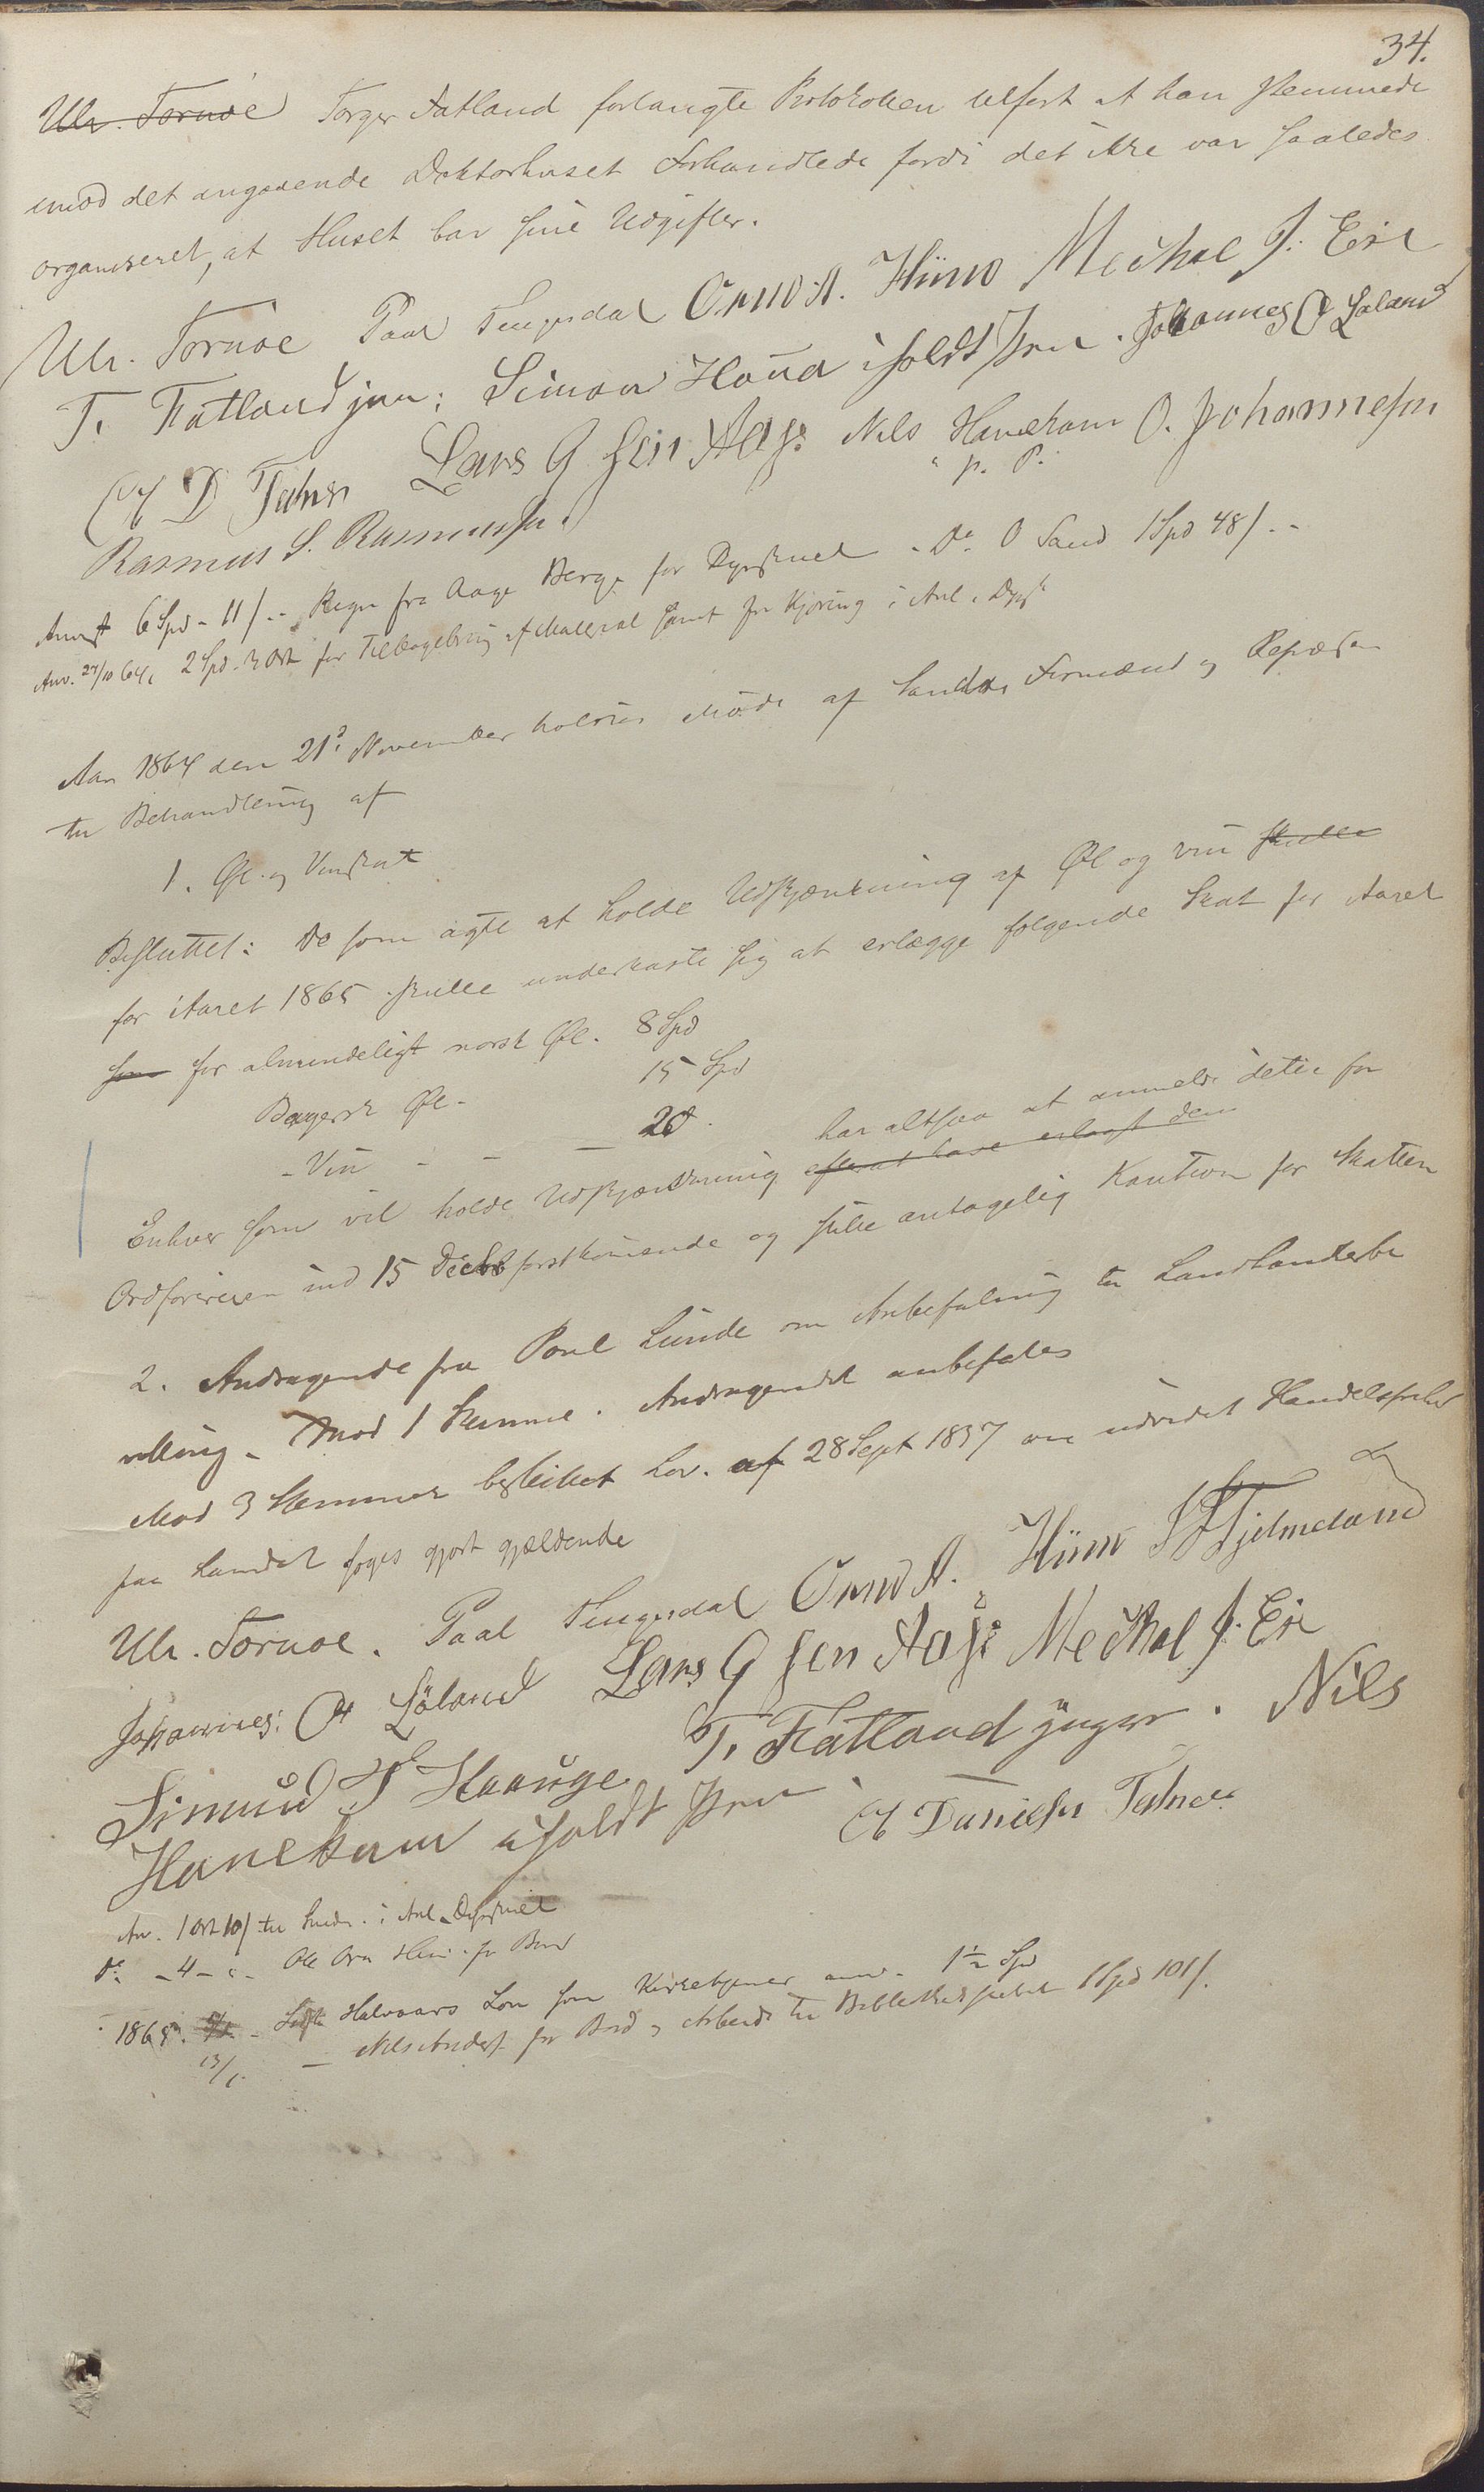 34.
Ulr. Tornöe Torger Fatland forlangte Protokollen tilført at han stemmede
imod det angaaende Doktorhuset Forhandlede fordi det ikke var saaledes
organiseret, at Huset bar sine Udgifter.
Ulr. Tornöe Paal Tengesdal Ormd A. Hiim Mechal J. Eie
T. Fatland jun: Simon Houa iholdt Pen. Johannes O Løland
D Lars G sen Aase Nils Hanekam O. Johannesen
Rasmus S. Rasmussen. " p. P.
Anvist 6 Spd - 11 s. - Regn fra Aage Berge for Dyrskuet - Do. O Sand 1 Spd 48 s. -
Anv. 27/10 64, 2 Spd. 3 Ort for Tilbagebring af Material samt for Kjøring i Anl. Dysk
Aar 1864 den 21d November holdtes Møde af Sands Formænd og Repræsen
til Behandling af
1. Øl- og Vinskat
Besluttet: De som agte at holde Udskjænkning af Øl og Vin skulle
for Aaret 1865 skulle underkaste sig at erlægge følgende Skat for Aaret
som for almindeligt norsk Øl. 8 Spd
Bayersk Øl - 15 Spd
- Vin - - - 20.
Enhver som vil holde Udskjænkning efter at have erlagt den har altsaa at anmelde dette for
Ordføreren ind 15 Decbr førstkommende og stille antagelig Kaution for Skatten
2. Andragende fra Poul Lunde om Anbefaling til Landhandlerbe
villing - Mod 1 Stemme. Andragendet anbefales
Mod 3 Stemmer besluttet Lov. af 28 Sept 1857 om udvidet Handelsfrihed
paa Landet søges gjort gjældende
Ulr. Tornöe. Paal Tengesdal Ormd A. Hiim Hjelmeland
Johannes: O Løland Lars G sen Aase Mechal J. Eie
Simund T Haauge T. Fatland ynger. Nils
Hanekam iholdt Pen Danielsen
An. 1 Ort 10 s til Snedk. i Anl. Dyrskuet
Do. - 4 - " - Ole for Bord
1865. - Halvaars Løn som Kirketjener anv. 1½ Spd
13/1. - Nils Anders for Bord og Arbeide til 1 Spd 101 s.